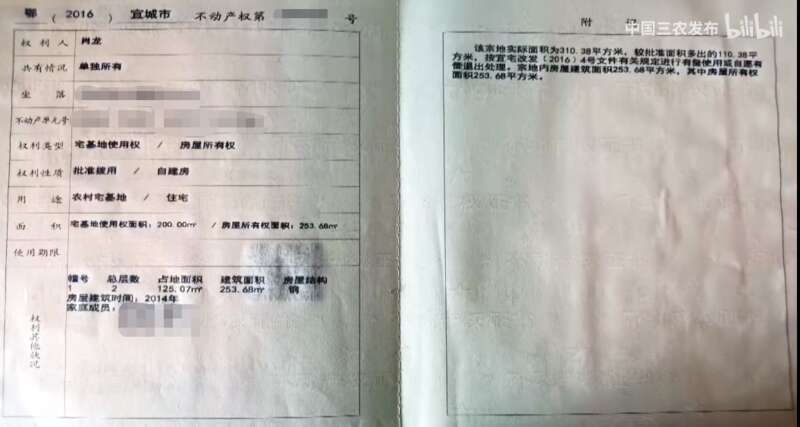 鄂 （ 2016 ） 宜城市 不动产权第 号
权利人 肖龙
共有情况 单独所有
坐落
不动产单元号
权利类型 宅基地使用权 / 房屋所有权
权利性质 批准拨用 / 自建房
用途 农村宅基地 / 住宅
面积 宅基地使用权面积：200.00㎡ / 房屋所有权面积：253.68㎡
使用期限
权利其他状况
幢号 总层数 占地面积 建筑面积 房屋结构
1 2 125.07㎡ 253.68㎡ 钢
房屋建筑时间：2014年
家庭成员：
中国三农发布 bilibili
附 记
该宗地实际面积为310.38平方米，较批准面积多出的110.38平
方米，按宜宅改发（2016）4号文件有关规定进行有偿使用或自愿有
偿退出处理。宗地内房屋建筑面积253.68平方米，其中房屋所有权
面积253.68平方米。